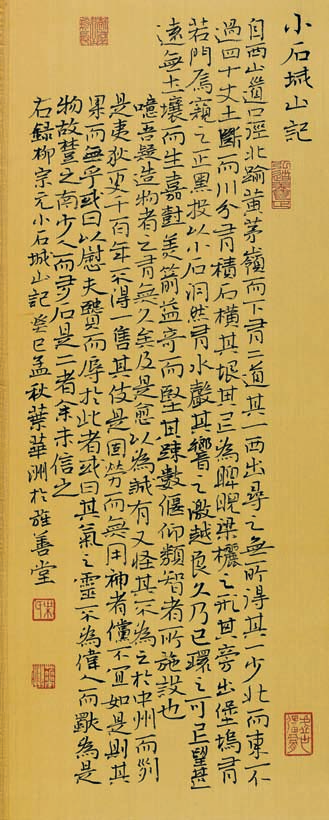 小石城山記
自西山道口徑北踰黃茅嶺而下有二道其一西出尋之無所得其一少北而東不
過四十丈土斷而川分有積石橫其垠其上為睥睨梁欐之形其旁出堡塢有
若門焉窺之正黑投以小石洞然有水聲其響之激越良久乃已環之可上望甚
遠無土壤而生嘉樹美箭益奇而堅其疎數偃仰類智者所施設也
噫吾疑造物者之有無久矣及是愈以為誠有又怪其不為之於中州而列
是夷狄更千百年不得一售其伎是固勞而無用神者儻不宜如是則其
果無乎或曰以慰夫賢而辱於此者或曰其氣之靈不為偉人而獨為是
物故楚之南少人而多石是二者余未信之
右錄柳宗元小石城山記癸巳孟秋葉華洲於雅善堂